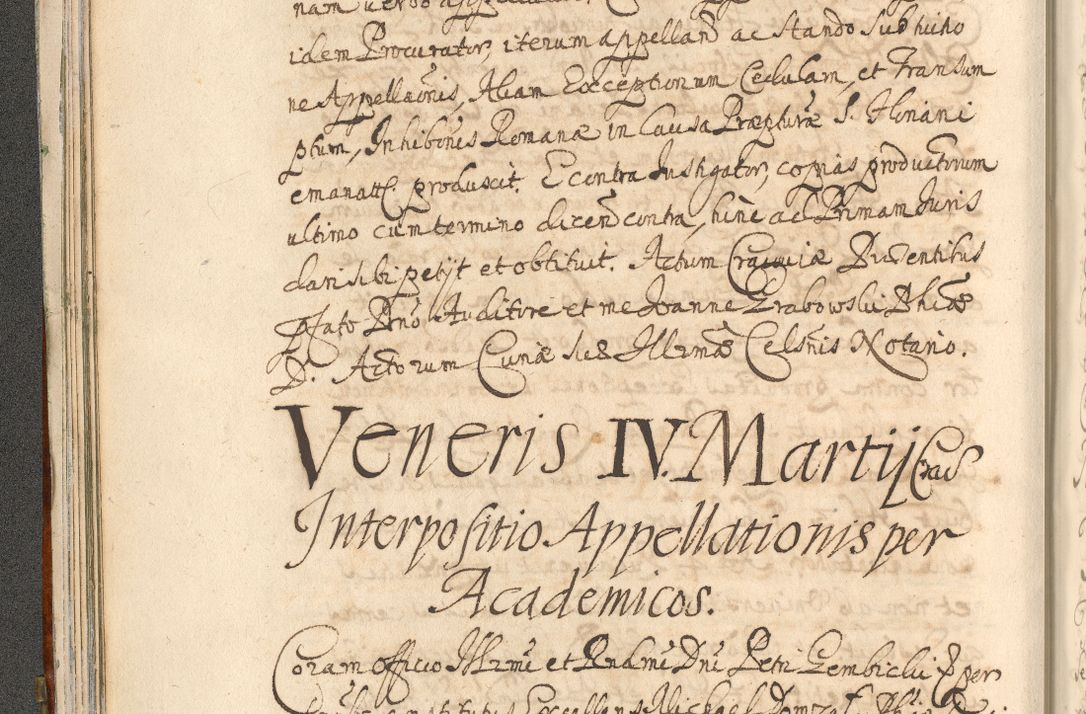 idem Procurator, iterum appellan͂ ac Stando Subinino
ne Appellaõnis, Aliam Exceptionum Cedulam, et Transum
ptum, Inhibõnis Romanæ in Causa Præpturæ S. Floriani
emanatt. produxit. E contra Instigator, copias productorum
ultimo cũm termino dicen͂ contra, hinc ad Primam Juris
dari sibi petijt et obtituit. Actum Cracoviæ Præsentibus
pfato Dno Auditore et me Joanne Grabowski
D. Actorum Curiæ Suæ Illrmæ Celsnis Notario.
Veneris IV. Martij Cras
Interpositio Appellationis per
Academicos.
Coram officio Illrmi et Rndmi Dni Petri Gembicki &per
constitutus Excellens Michael